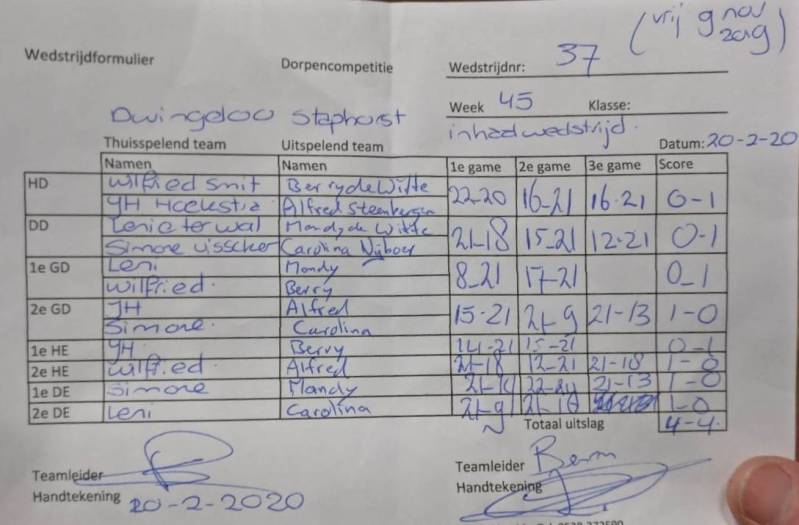 (vrij 9 nov 2019)
Wedstrijdformulier Dorpencompetitie Wedstrijdnr: 37
Week 45 Klasse:
Dwingeloo Staphorst inhaalwedstrijd.
Thuisspelend team Uitspelend team Datum: 20-2-20
Namen Namen 1e game 2e game 3e game Score
HD Wilfried Smit Berry de Witte 22-20 16-21 16-21 0-1
JH Hoekstra Alfred Steenbergen
DD Lenie ter wal Mandy de Witte 21-18 15-21 12-21 0-1
Simone Visscher Carolina Nijboer
1e GD Leni Mandy 8-21 17-21 0-1
Wilfried. Berry
2e GD JH Alfred 15-21 21-9 21-13 1-0
Simone. Carolina
1e HE JH. Berry 14-21 15-21 0-1
2e HE Wilfried. Alfred 21-18 12-21 21-18 1-0
1e DE Simone Mandy 21-13 1-0
2e DE Leni Carolina 21-9 1-0
Totaal uitslag 4-4.
Teamleider Teamleider
Handtekening 20-2-2020 Handtekening